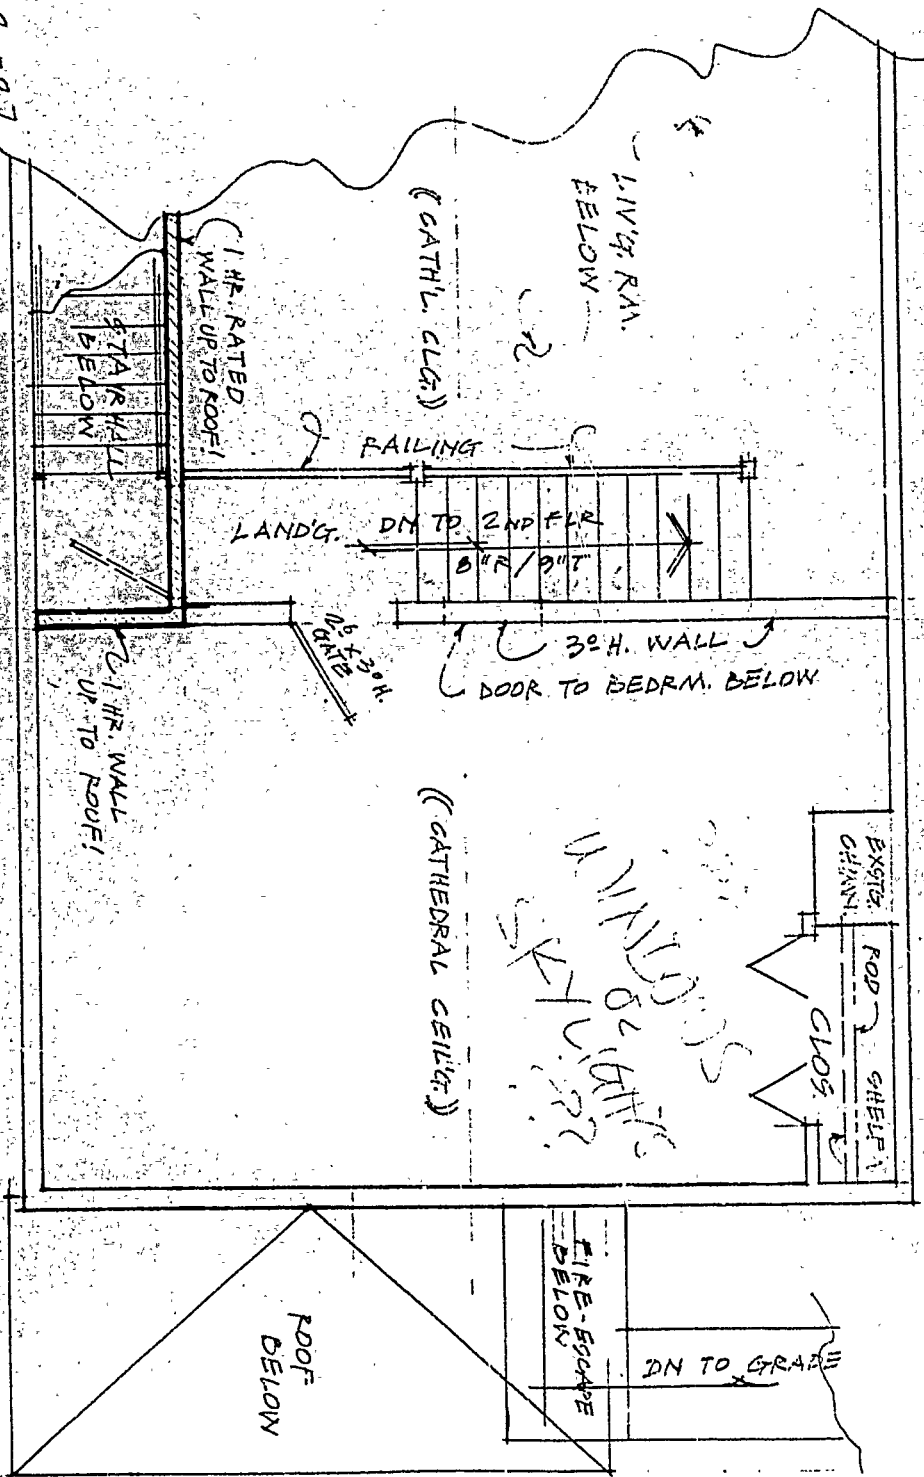 LIV'G. RM.
BELOW
((CATH'L. CLG.))
1 HR. RATED
WALL UP TO ROOF!
STAIRHALL
BELOW
RAILING
LAND'G.
DN TO 2ND FLR
8"R / 9"T
2⁶ x 3⁰ H.
GATE
3⁰ H. WALL
DOOR TO BEDRM. BELOW
1 HR. WALL
UP TO ROOF!
((CATHEDRAL CEIL'G.))
WINDOWS
OR
SKYLIGHTS
??
EXSTG.
CHIMN.
ROD
SHELF
CLOS.
FIRE-ESCAPE
BELOW
DN TO GRADE
ROOF
BELOW